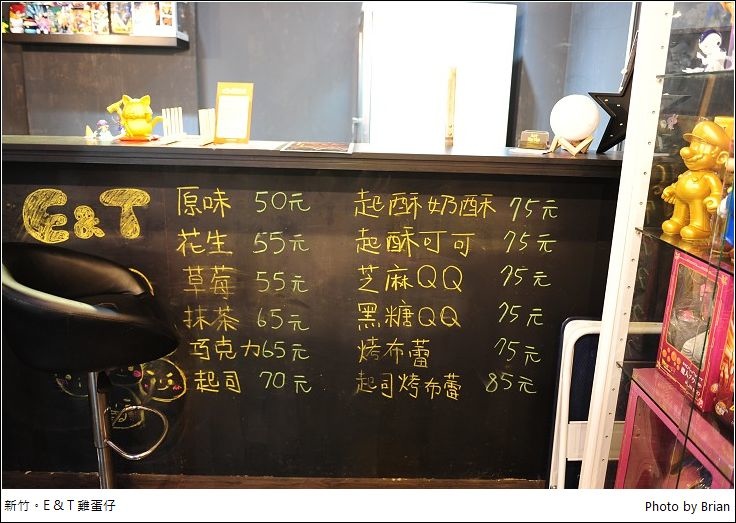 E&T
原味 50元
花生 55元
草莓 55元
抹茶 65元
巧克力65元
起司 70元
起酥奶酥 75元
起酥可可 75元
芝麻QQ 75元
黑糖QQ 75元
烤布蕾 75元
起司烤布蕾 85元
新竹。E&T 雞蛋仔
Photo by Brian